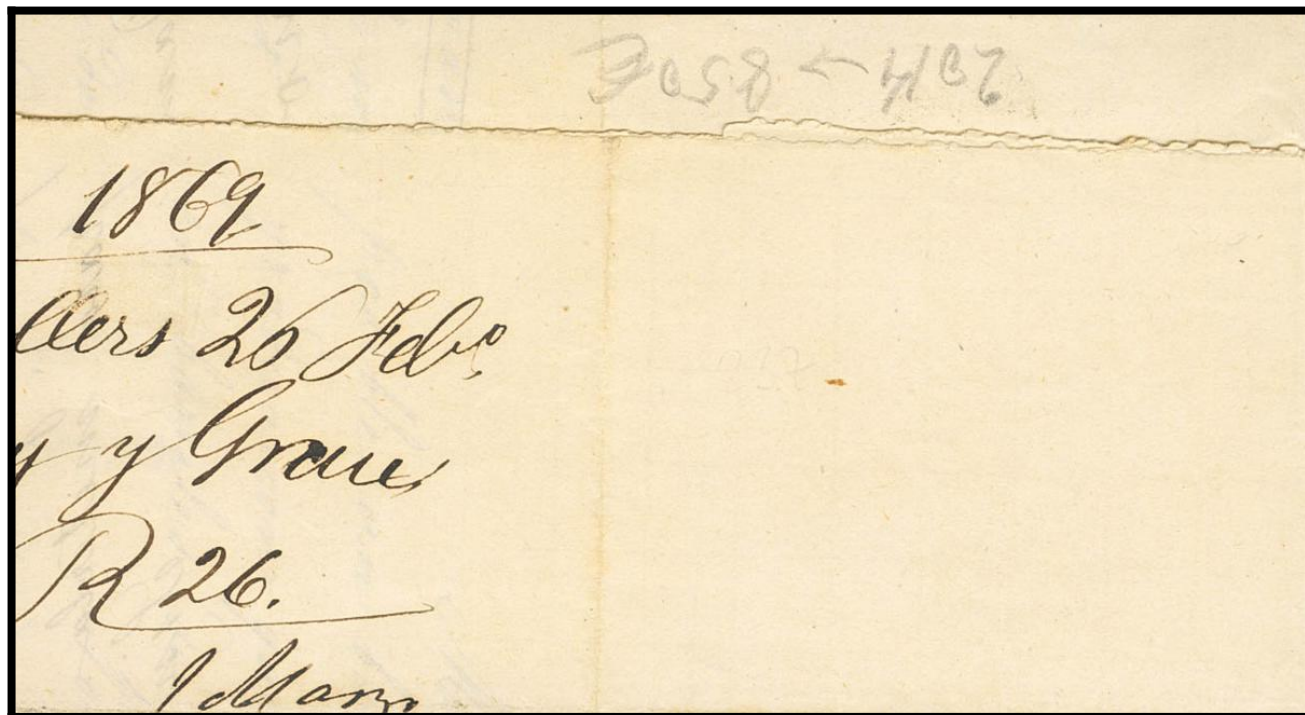 1869
llers 26 Febo
y y Graue
R 26.
1 Marzo